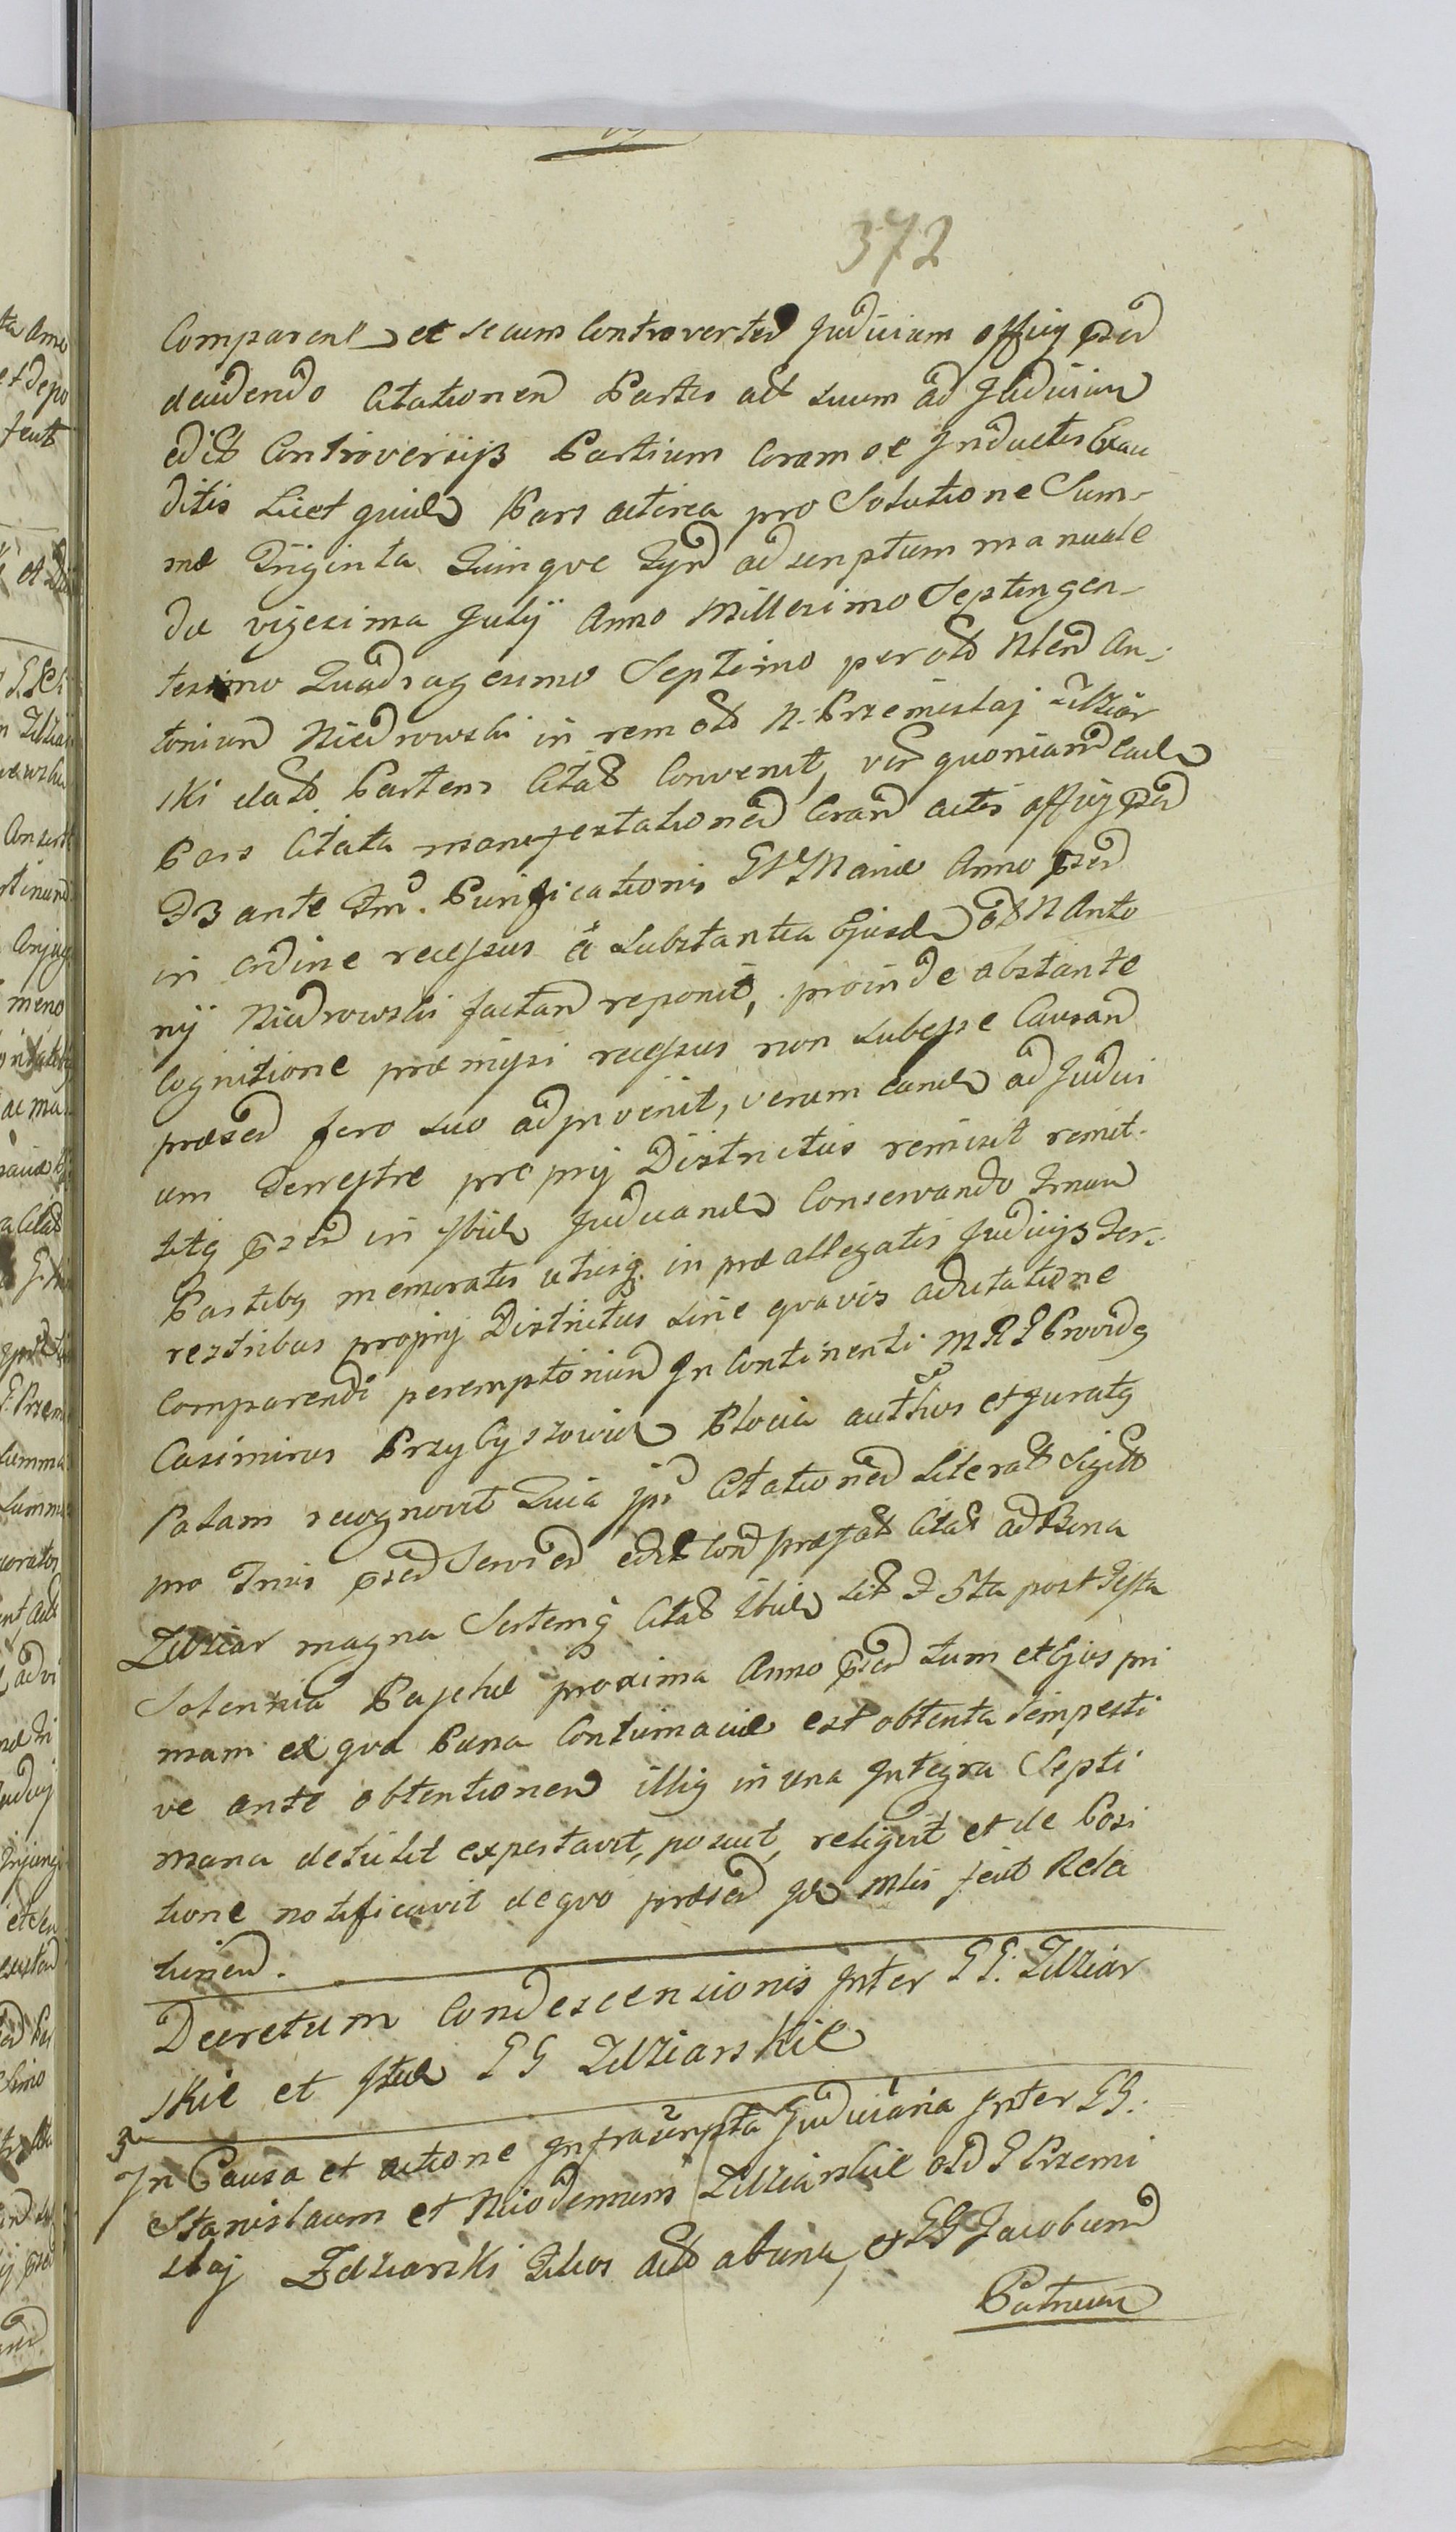 372
Comparent et secum Controverten Judicium officij psen
deudendo Citationem Partis act suum ad Judicium
edit Controversijs Partium Coram se Inductis Exau
ditis Licet quidem Pars actorea pro Solutione Sum-
mæ Triginta Quinque Tyn ad scriptum manuale
die vigesima Julij Anno Millesimo Septingen-
tesimo Quadragesimo Septimo per olim Nlem An-
tonium Niedrowski in rem olim N. Przemislaj Zdziar
ski dato Partem Citatam Convenit, vers quoniam eadem
Pars Citata manifestationem Coram actis officij psen
ante Tm. Purificationis Mariæ Anno psen
in ordine recessus a Substantia Ejusdem olim N Anto
nij Niedrowski factam reponit, proinde obstante
Cognitione præmissi recessus non Subesse Causam
præsen foro suo adinvenit, verum eandem ad Judici
um Terrestre proprij Districtus remisit remit-
titq psen in Ibidem Judicandam Conservando Tmum
Partibq memoratis utrisq. in præallegatis Judicijs Ter-
restribus proprij Districtus sine quavis adcitatione
Comparendi peremptorium In Continenti M R P Provids
Casimirus Przybyszowicz Plocia auth et juratq
Palam recognovit Quia ips Citationem Literat Sigill
pro Tmis psen Servien edit Con præfat Citat ad Bona
Zdziar magna Sortemq Citat Ibidem Sit F 5ta post Festa
Solennia Paschæ proxima Anno psen tum et Ejus pri
mam ex qua Pœna Contumaciæ est obtenta tempesti
ve ante obtentionem illiq in una Integra Septi
mana detulit expectavit, posuit, reliquit et de Posi
tione notificavit de quo præsen Ide Mlis fecit Rela
tionem.
Decretum Condescensionis Inter GG. Zdziar
skie et Item GG Zdziarskie
In Causa et actione Infrascripta Judiciaria Inter GG.
Stanislaum et Nicodemum Zdziarskie olim G Przemi
slaj Zdziarski Filios act ab una, et GG Jacobum
Patruum